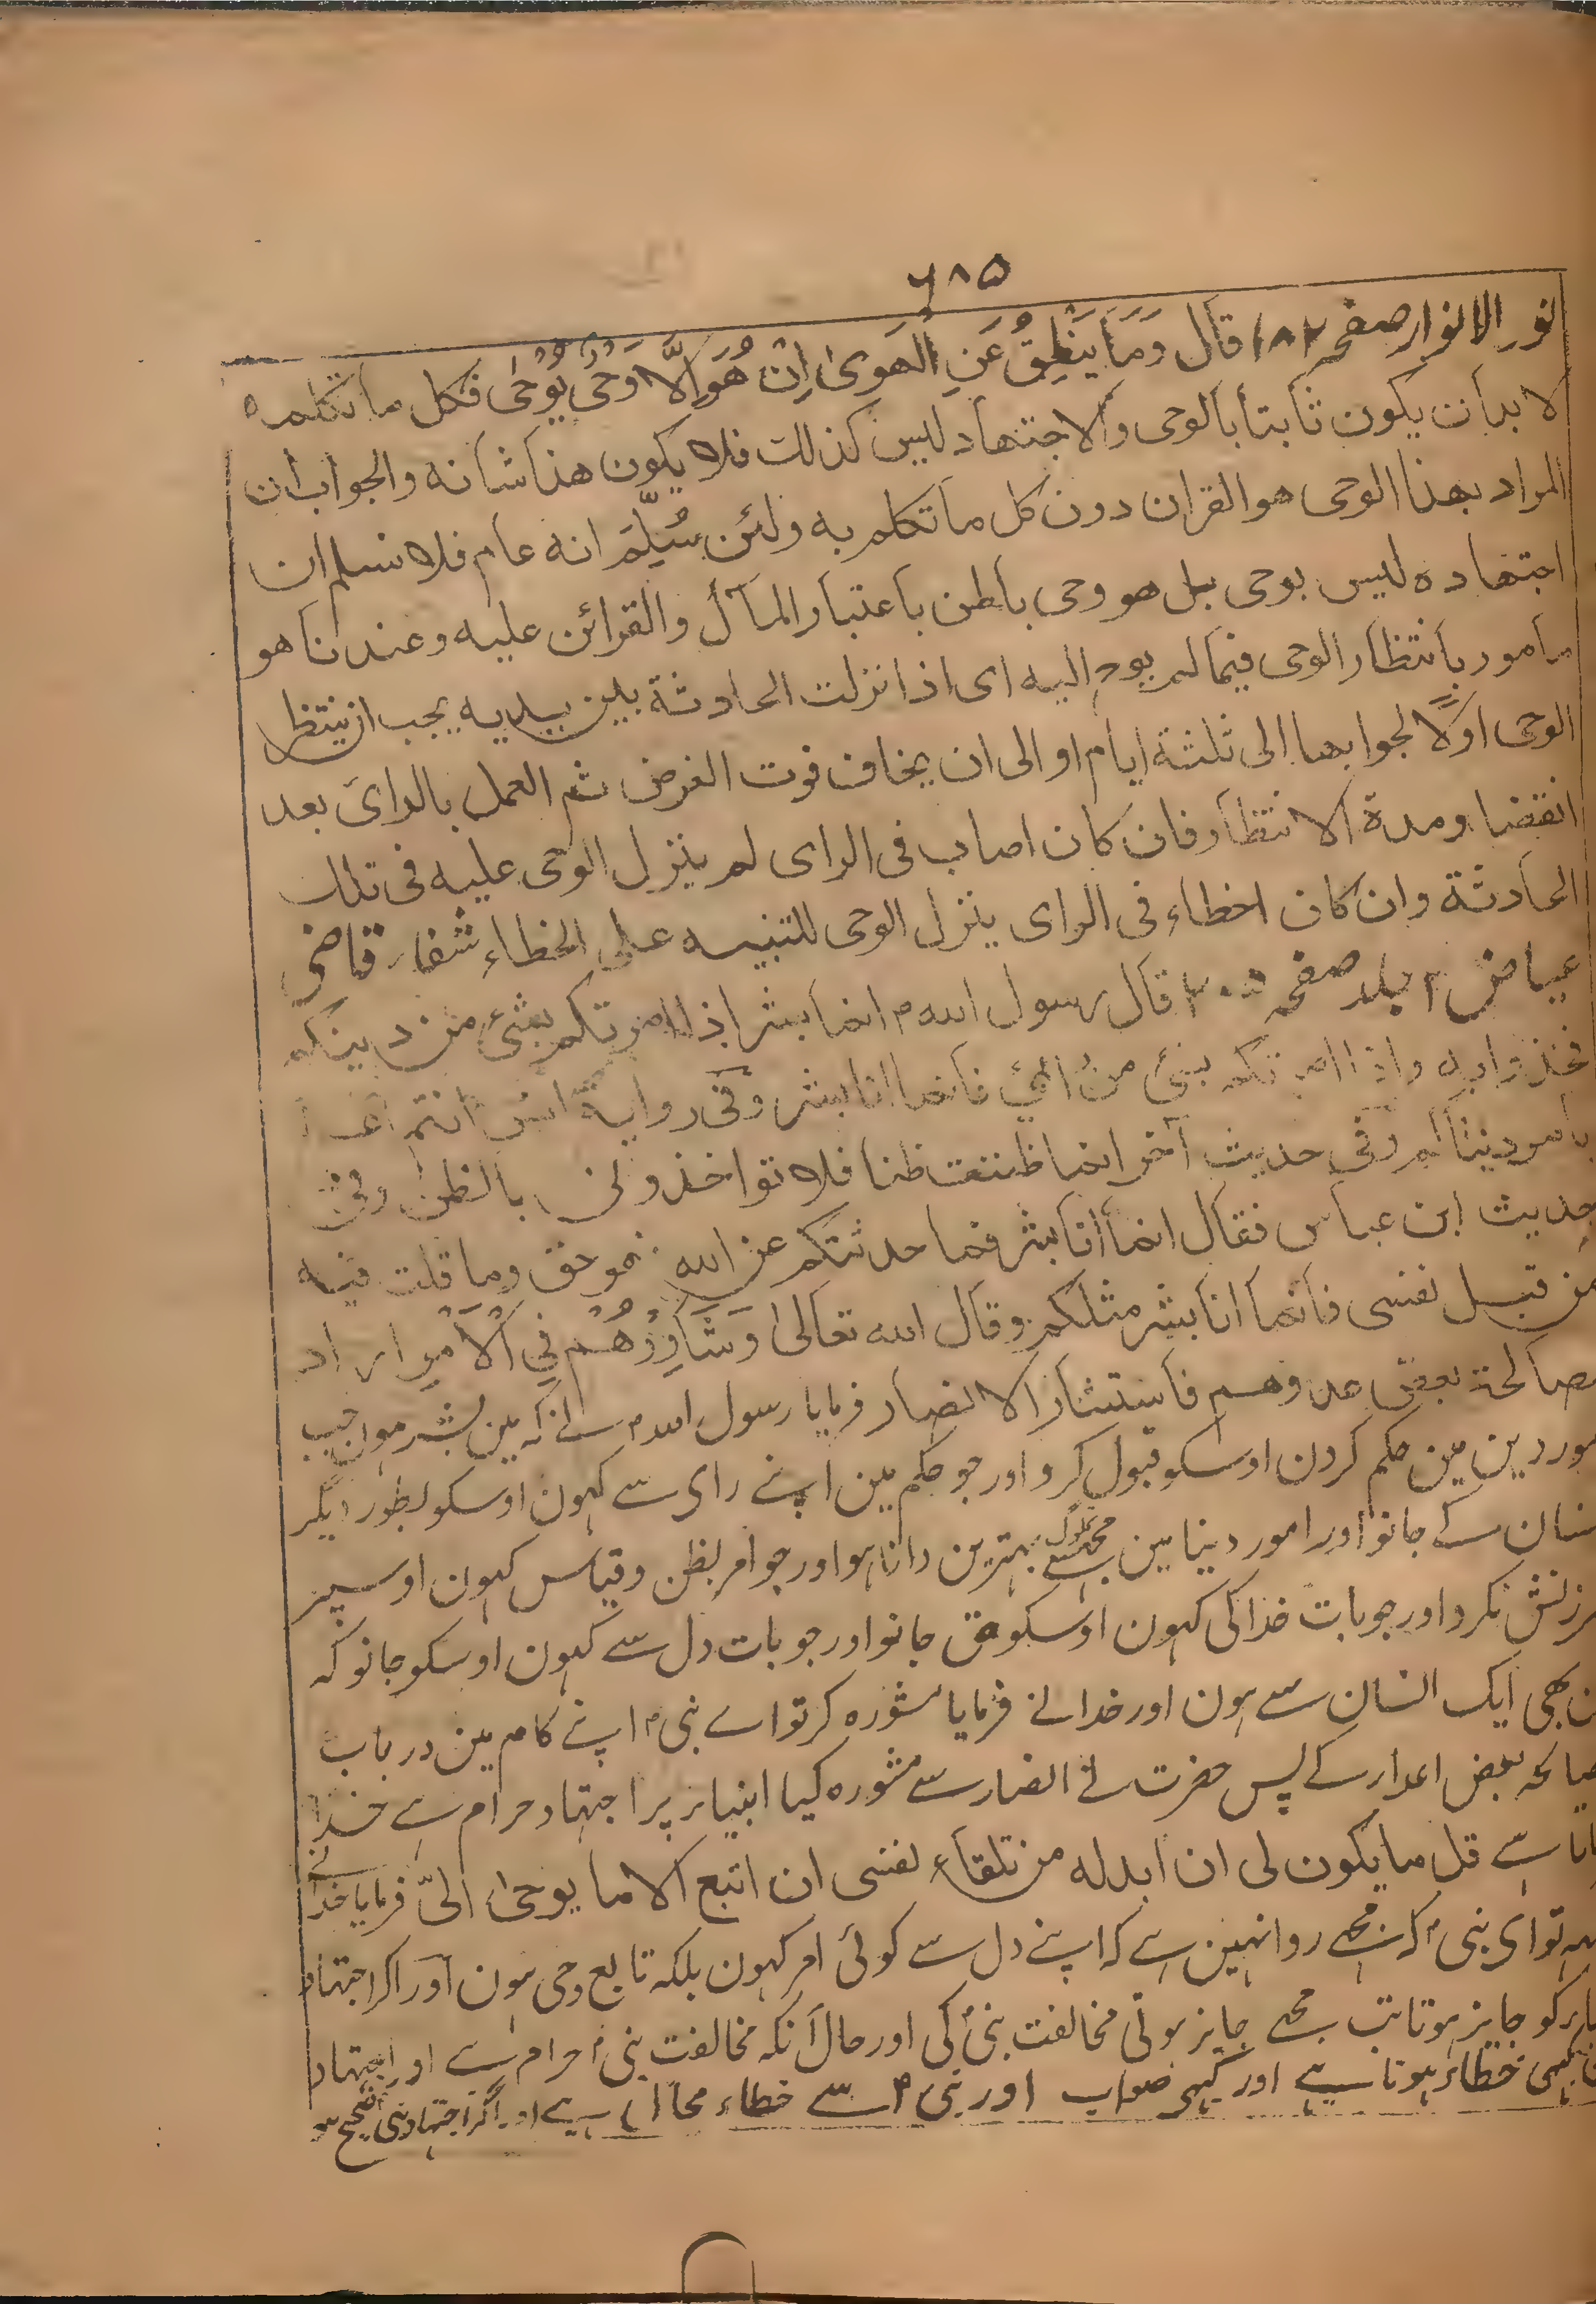 ٦٨٥
نور الانوار صفحہ ١٨٢ قال وَمَا يَنْطِقُ عَنِ الْهَوىٰ اِنْ هُوَ اِلَّا وَحْىٌ يُوْحىٰ فكل ما تكلم به
لا بد أن يكون ثابتا بالوحى والاجتهاد ليس كذلك فلا يكون هذا شانه والجواب ان
المراد بهذا الوحى هو القران دون كل ما تكلم به ولئن سُلِّمَ انه عام فلا نسلم ان
اجتهاده ليس بوحى بل هو وحى باطن باعتبار المآل والقرائن عليه وعندنا هو
مامور بانتظار الوحى فيما لم يوح اليه اى اذا نزلت الحادثة بين يديه يجب ان ينتظر
الوحى اولًا لجوابها الى ثلثة ايام او الى ان يخاف فوت الغرض ثم العمل بالراى بعد
انقضاء مدة الانتظار فان كان اصاب فى الراى لم ينزل الوحى عليه فى تلك
الحادثة وان كان اخطاء فى الراى ينزل الوحى للتنبيه على الخطاء شفاء قاضى
عياض ٢ جلد صفحہ قال رسول الله م انما بشر اذا امرتكم بشئ من دينكم
فخذوا به واذا امرتكم بشئ من رائي فانما انا بشر وفى رواية انس انتم اعلم
بامور دنياكم وفى حديث آخر انما ظننت ظنا فلا تواخذونى بالظن وفى
حديث ابن عباس فقال انما انا بشر فما حدثتكم عن الله فهو حق وما قلت فيه
من قبل نفسى فانما انا بشر مثلكم وقال الله تعالىٰ وَشَاوِرْهُمْ فِي الْاَمْرِ اراد
مصالحة بعض عدوهم فاستشار الانصار فرمایا رسول اللہ م نے کہ مین بشر ہون جب
امور دین مین حکم کردن اوسکو قبول کرو اور جو حکم مین اپنے رای سے کہون اوسکو بطور دیگر
انسان کے جانو اور امور دینا مین مجھسے تملوگ بہترین دانا ہو اور جو امر بظن و قیاس کہون اوسپر
سرزنش نکرو اور جو بات خدا کی کہون اوسکو حق جانو اور جو بات دل سے کہون اوسکو جانو کہ
مین بھی ایک انسان سے ہون اور خدا نے فرمایا مشورہ کر تو اے نبی م اپنے کام مین در باب
مصالحہ بعض اعداء کے پس حضرت نے انصار سے مشورہ کیا ابنیاء پر اجتہاد حرام ہے خدا
فرماتا ہے قل ما يكون لى ان ابدله من تلقاء نفسى ان اتبع الا ما يوحىٰ الىّ فرمایا خدا نے
کہہ تو ای نبی م کہ مجھے روا نہین ہے کہ اپنے دل سے کوئی امر کہون بلکہ تابع وحی ہون اور اگر اجتہاد
ابنیاء کو جایز ہوتا تب مجھے جایز ہوتی مخالفت نبی م کی اور حال آنکہ مخالفت نبی م حرام ہے اور اجتہاد
مین کبھی خطاء ہوتا ہے اور کبھی صواب اور نبی م سے خطاء محال ہے اور اگر اجتہاد نبی م صحیح ہو